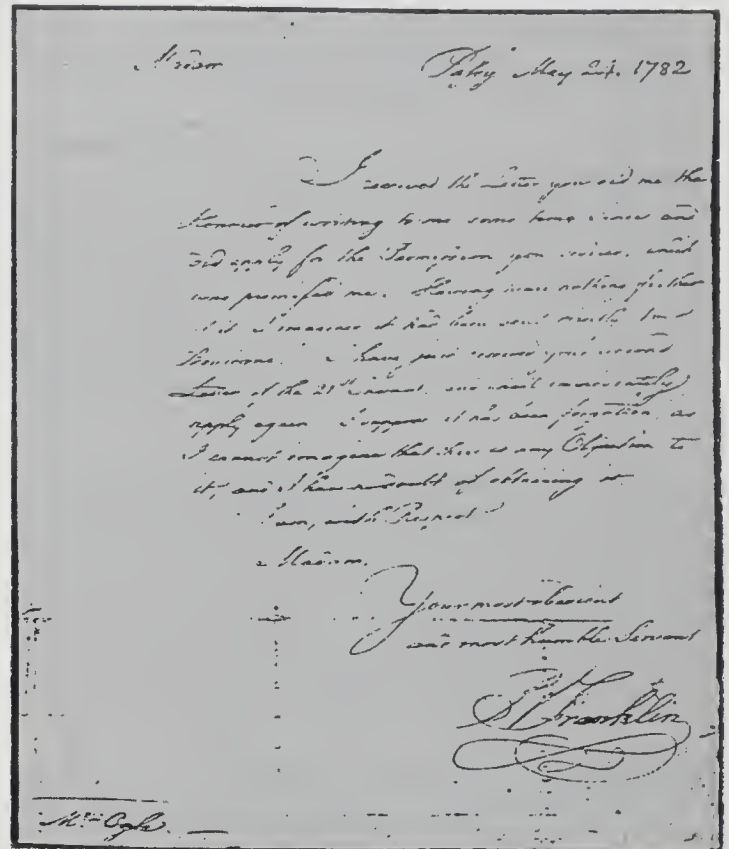 Madam Passy May 24. 1782
I received the Letter you did me the
Honour of writing to me some time since and
did apply for the Permission you desired, which
was promised me. Having heard nothing further
of it I imagined it had been sent directly to
I have just received your second
Letter of the 21st Instant and shall immediately
apply again. I suppose it has been forgotten, as
I cannot imagine that there is any Objection to
it, and I have no doubt of obtaining it.
I am, with Respect
Madam,
Your most obedient
and most humble Servant
B Franklin